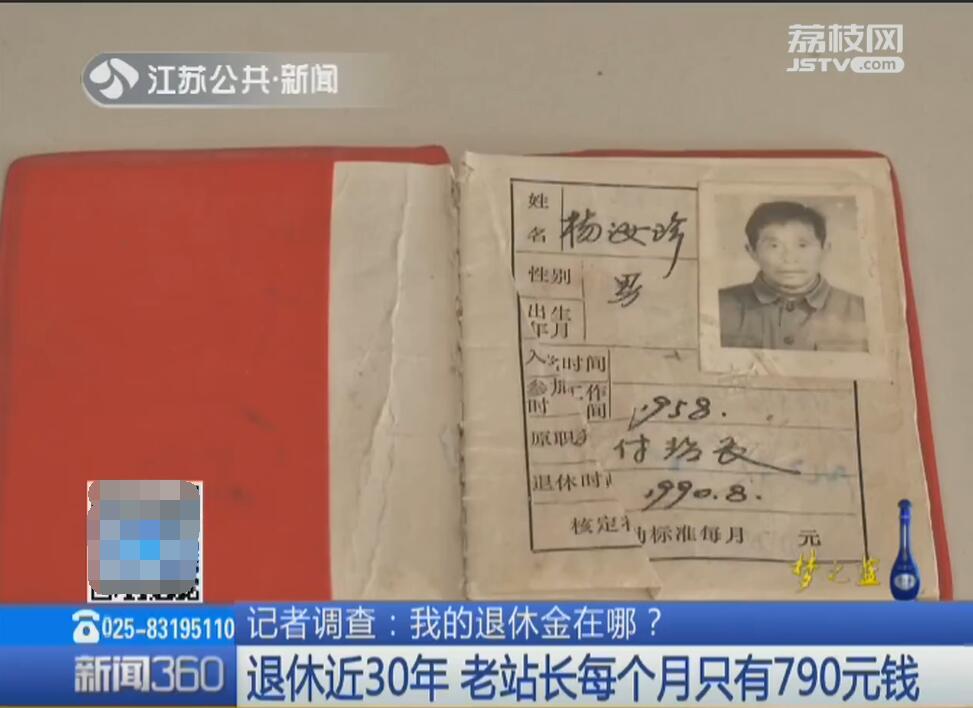 荔枝网
JSTV.com
江苏公共·新闻
姓名 杨汝珍
性别 男
出生年月
入 时间
参加工作时间 1958.
原职务 付站长
退休时 1990.8.
核定 标准每月 元
梦之蓝
025-83195110
记者调查：我的退休金在哪？
新闻360
退休近30年 老站长每个月只有790元钱